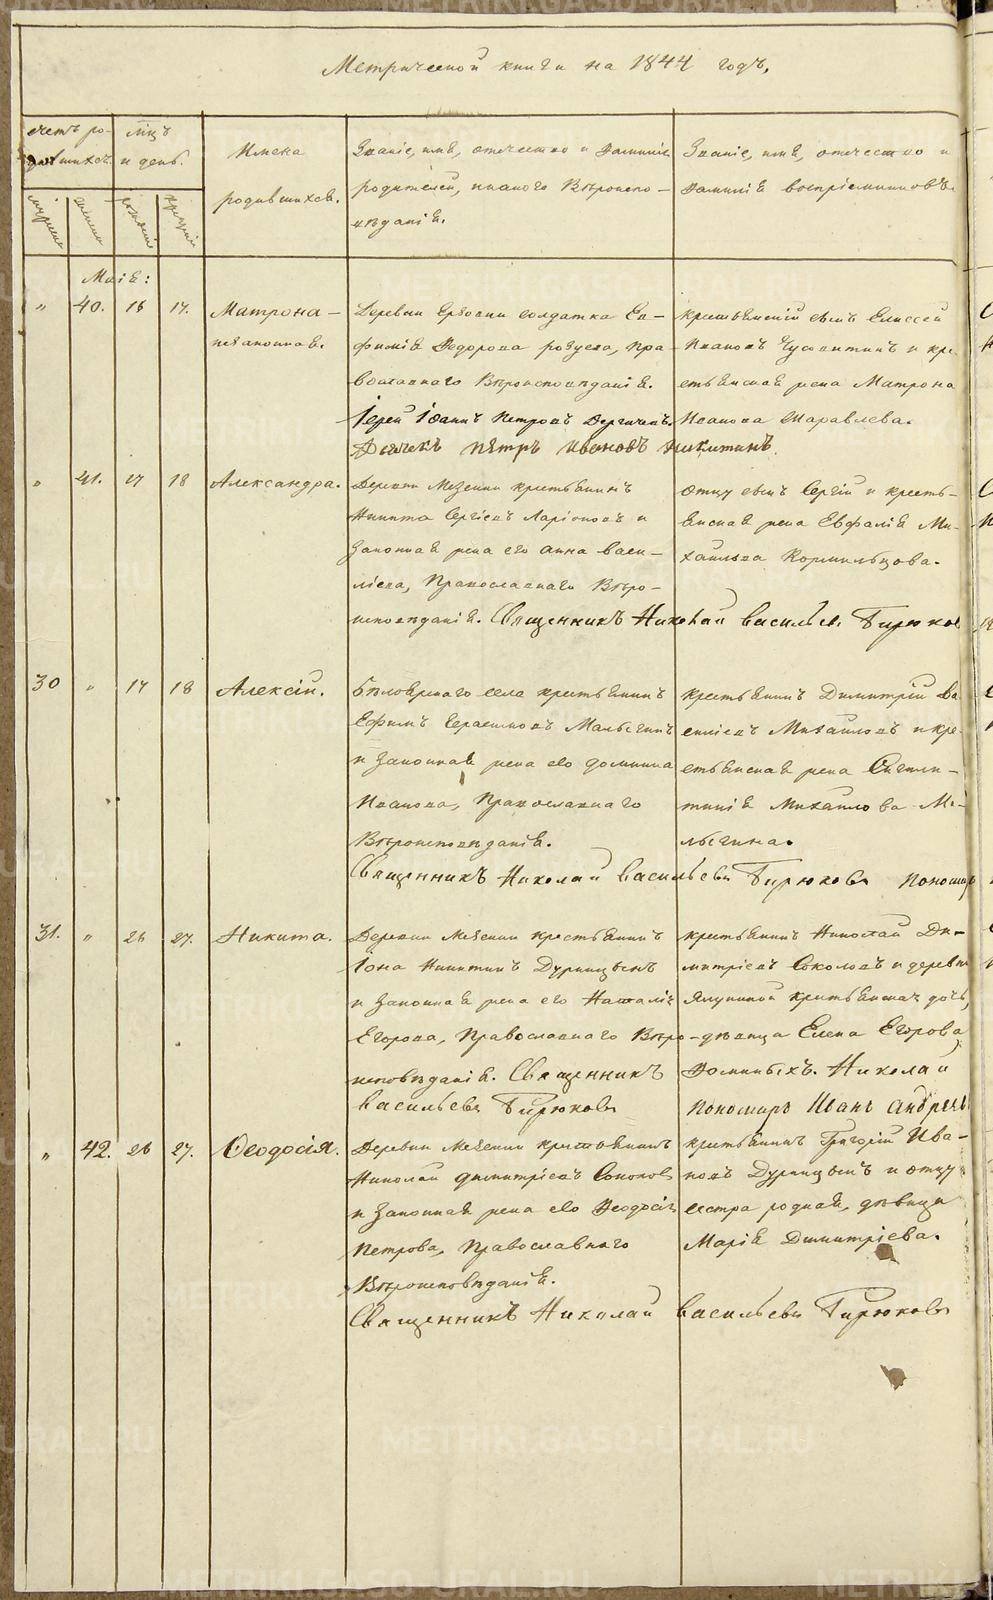 Метрической книги на 1844 годъ.
счетъ ро-
дившихся.
мцъ
и день.
Имена
родившихся.
Званіе, имя, отечество и фамилія
родителей, и какого Вѣроиспо-
вѣданія.
Званіе, имя, отечество и
фамилія воспріемниковъ.
Маія:
" 40. 16 17. Матрона -
незаконная.
Деревни солдатка Ев-
фимія Федорова, пра-
вославнаго Вѣроисповѣданія.
Іерей Іоаннъ Петровъ
Дьячекъ Петръ Ивановъ Никитинъ.
крестьянскій сынъ Елисей
Ивановъ и кре-
стьянская жена Матрона
Иванова Шаравлева.
" 41. 17 18 Александра.
Деревни Мезенки крестьянинъ
Никита Сергіевъ Ларіоновъ и
законная жена его Анна Васи-
ліева, Православнаго Вѣро-
исповѣданія. Священникъ Николай Васильевъ Бирюковъ
отцу сынъ Сергій и кресть-
янская жена Евфалія Ми-
хайлова Кормильцова.
30 " 17 18 Алексій.
Бѣлоярскаго села крестьянинъ
Ефимъ Герасимовъ Мальгинъ
и законная жена его Домника
Иванова, Православнаго
Вѣроисповѣданія.
Священникъ Николай Васильевъ Бирюковъ Пономар
крестьянинъ Димитрій Ва-
силіевъ Михайловъ и кре-
стьянская жена
Михайлова Ма-
льгина.
31. " 26 27. Никита.
Деревни Мезенки крестьянинъ
Іона Никитинъ Дурницынъ
и законная жена его Наталія
Егорова, Православнаго Вѣро-
исповѣданія. Священникъ Николай
Васильевъ Бирюковъ Пономарь Иванъ Андреевъ
крестьянинъ Николай Ди-
митріевъ Соколовъ и деревни
крестьянская дочь,
дѣвица Елена Егорова
Фоминыхъ.
" 42. 26 27. Ѳеодосія.
Деревни Мезенки крестьянинъ
Николай Димитріевъ Соколовъ
и законная жена его Феодосія
Петрова, Православнаго
Вѣроисповѣданія.
Священникъ Николай Васильевъ Бирюковъ
крестьянинъ Григорій Ива-
новъ Дурницынъ и отцу
сестра родная, дѣвица
Марія Димитріева.
METRIKI.GASO-URAL.RU